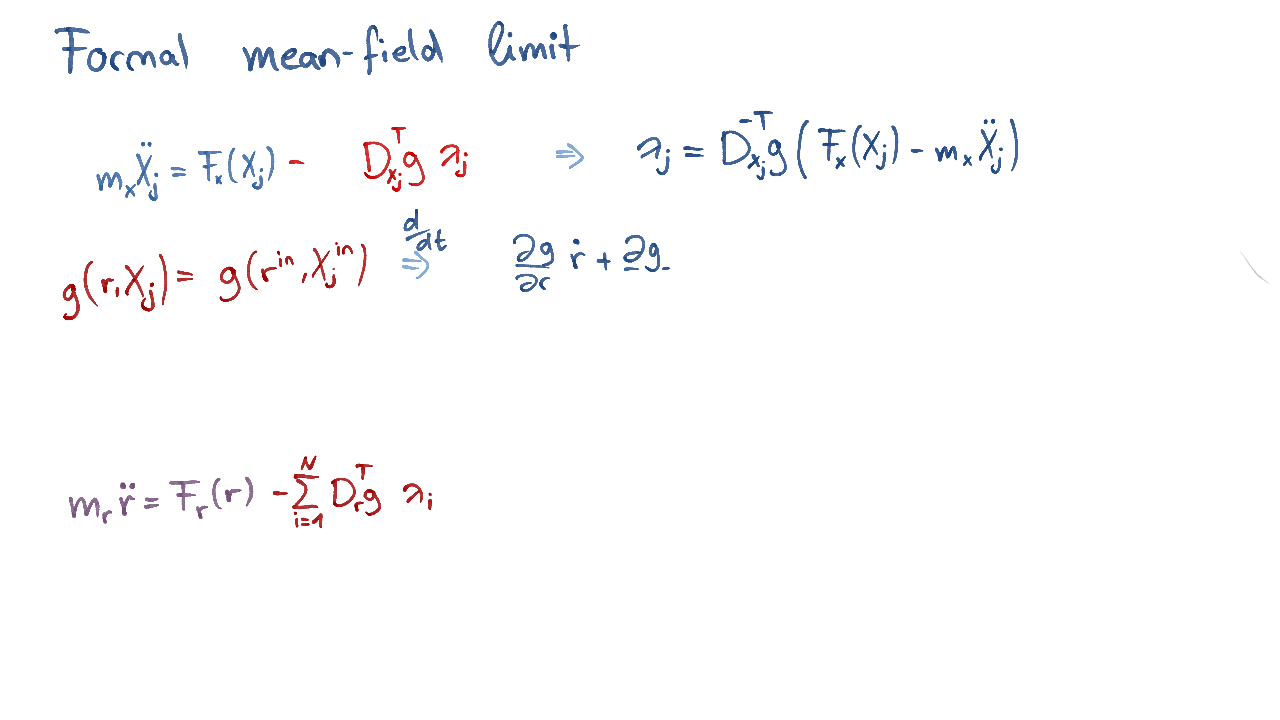 Formal mean-field limit
m_x Ẍ_j = F_x(X_j) - D_{x_j}^T g λ_j ⇒ λ_j = D_{x_j}^{-T} g ( F_x(X_j) - m_x Ẍ_j )
g(r, X_j) = g(r^{in}, X_j^{in}) d/dt ⇒ ∂g/∂r ṙ + ∂g
m_r r̈ = F_r(r) - ∑_{i=1}^N D_r^T g λ_i